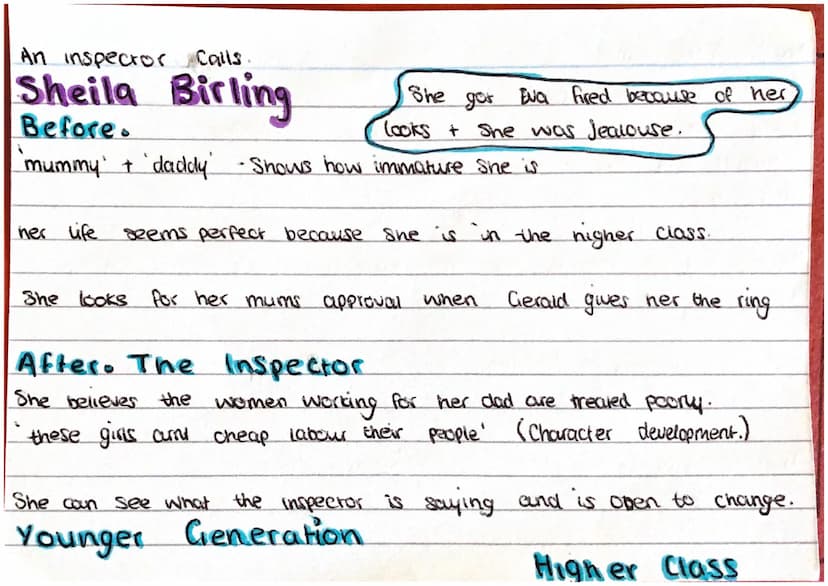 An inspector Calls.
Sheila Birling
She got Eva fired because of her
looks + she was jealouse.
Before.
'mummy' + 'daddy' - Shows how immature she is
her life seems perfect because she is in the higher class.
She looks for her mums approval when Gerald gives her the ring
After. The Inspector
She believes the women working for her dad are treated poorly.
'these girls arnt cheap labour their people' (Character development.)
She can see what the inspector is saying and is open to change.
Younger Generation
Higher Class